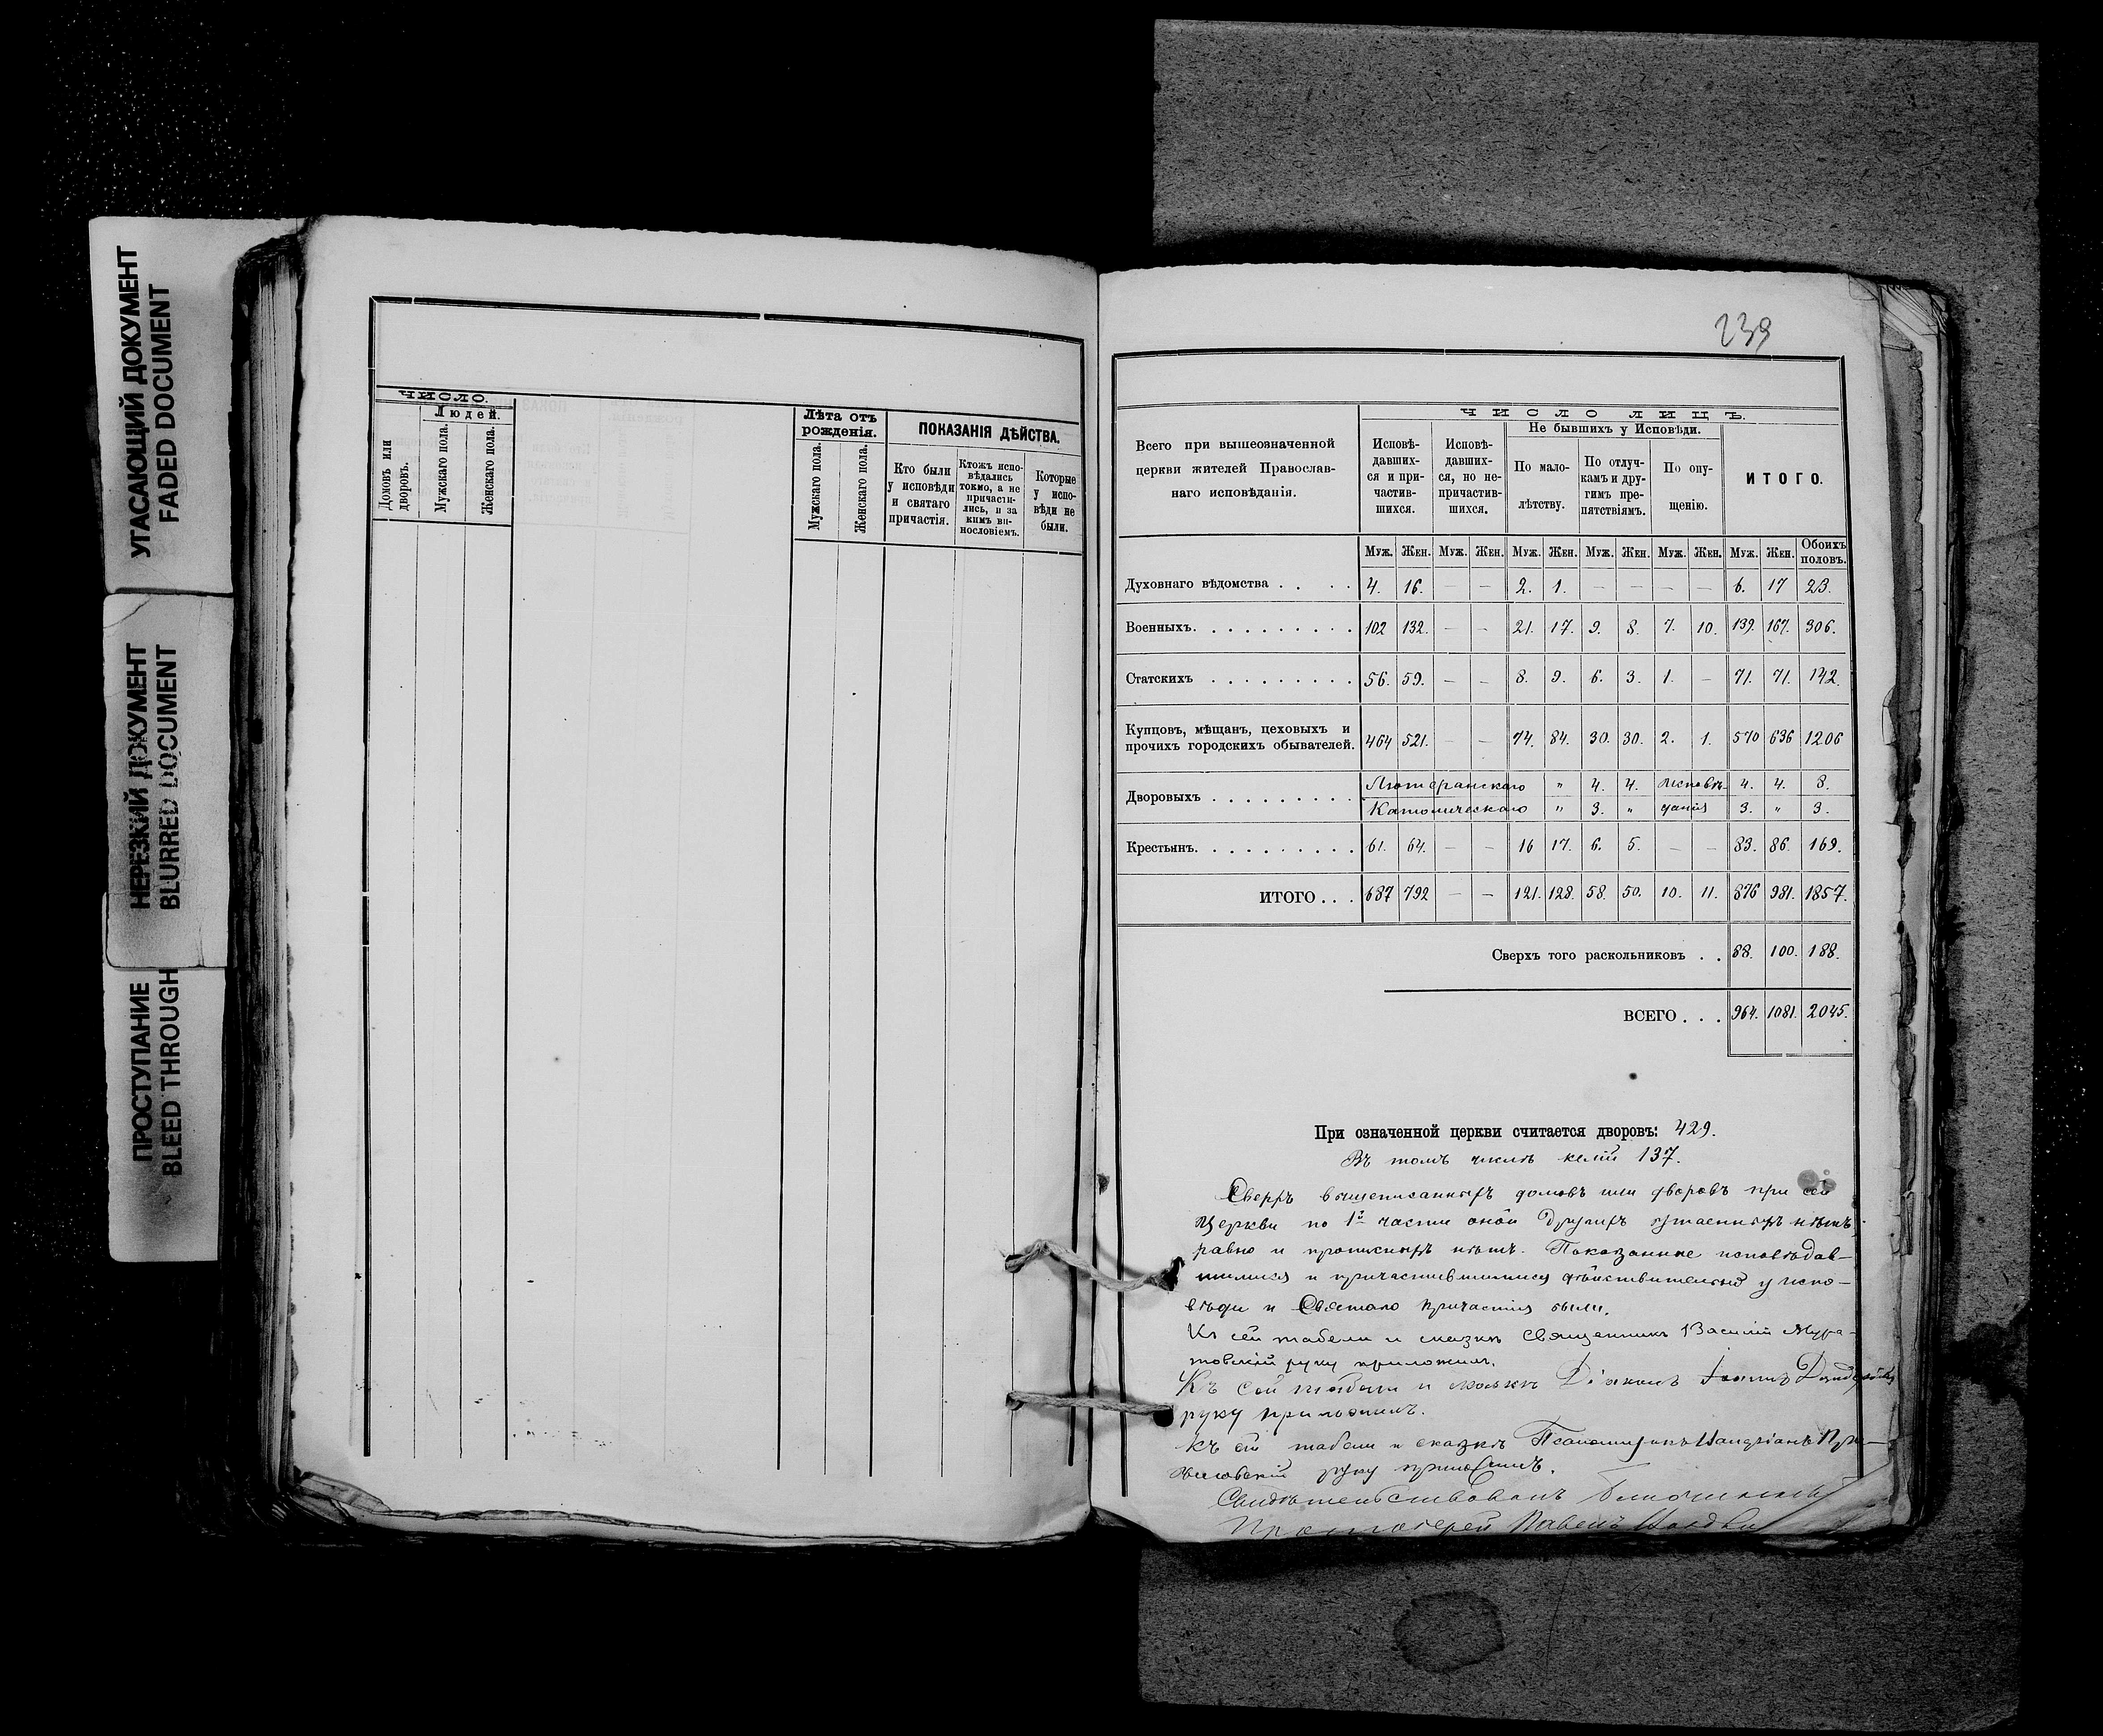 УГАСАЮЩИЙ ДОКУМЕНТ
FADED DOCUMENT
НЕРЕЗКИЙ ДОКУМЕНТ
BLURRED DOCUMENT
ПРОСТУПАНИЕ
BLEED THROUGH
ЧИСЛО.
Людей.
Домовъ или дворовъ.
Мужскаго пола.
Женскаго пола.
Лѣта отъ рожденія.
Мужскаго пола.
Женскаго пола.
ПОКАЗАНІЯ ДѢЙСТВА.
Кто были у исповѣди и святаго причастія.
Ктожъ исповѣдались токмо, а не причастились, и за кимъ винословіемъ.
Которые у исповѣди не были.
239
Всего при вышеозначенной церкви жителей Православнаго исповѣданія.
ЧИСЛО ЛИЦЪ.
Исповѣдавшихся и причастившихся.
Исповѣдавшихся, но непричастившихся.
Не бывшихъ у Исповѣди.
По малолѣтству.
По отлучкамъ и другимъ препятствіямъ.
По опущенію.
ИТОГО.
Муж. Жен. Муж. Жен. Муж. Жен. Муж. Жен. Муж. Жен. Муж. Жен. Обоихъ половъ.
Духовнаго вѣдомства . . . . 4. 16. — — 2. 1. — — — — 6. 17 23.
Военныхъ. . . . . . . . . . 102 132. — — 21. 17. 9. 8. 7. 10. 139. 167. 306.
Статскихъ . . . . . . . . . 56. 59. — — 8. 9. 6. 3. 1. — 71. 71. 142.
Купцовъ, мѣщанъ, цеховыхъ и прочихъ городскихъ обывателей. 464 521. — — 74. 84. 30. 30. 2. 1. 570 636 1206
Дворовыхъ . . . . . . . . . Лютеранскаго " 4. 4. исповѣ- 4. 4. 8.
Католическаго " 3. " данія 3. " 3.
Крестьянъ. . . . . . . . . . 61. 64. — — 16 17. 6. 5. — — 83. 86. 169.
ИТОГО . . . 687 792 — — 121. 128. 58. 50. 10. 11. 876 981. 1857.
Сверхъ того раскольниковъ . . 88. 100. 188.
ВСЕГО . . . 964. 1081. 2045.
При означенной церкви считается дворовъ: 429.
Въ томъ числѣ келій 137.
Сверхъ вышеписанныхъ домовъ или дворовъ при сей
Церкви по 1й части оной другихъ утаенныхъ нѣтъ,
равно и прописныхъ нѣтъ. Показанные исповѣдав-
шимися и причастившимися дѣйствительно у испо-
вѣди и Святаго причастія были.
Къ сей табели и сказкѣ Священникъ Василій Мура-
товскій руку приложилъ.
Къ сей табели и сказкѣ Діаконъ Іоаннъ
руку приложилъ.
Къ сей табели и сказкѣ Псаломщикъ
руку приложилъ.
Свидѣтельствовалъ Благочинный
Протоіерей Павелъ